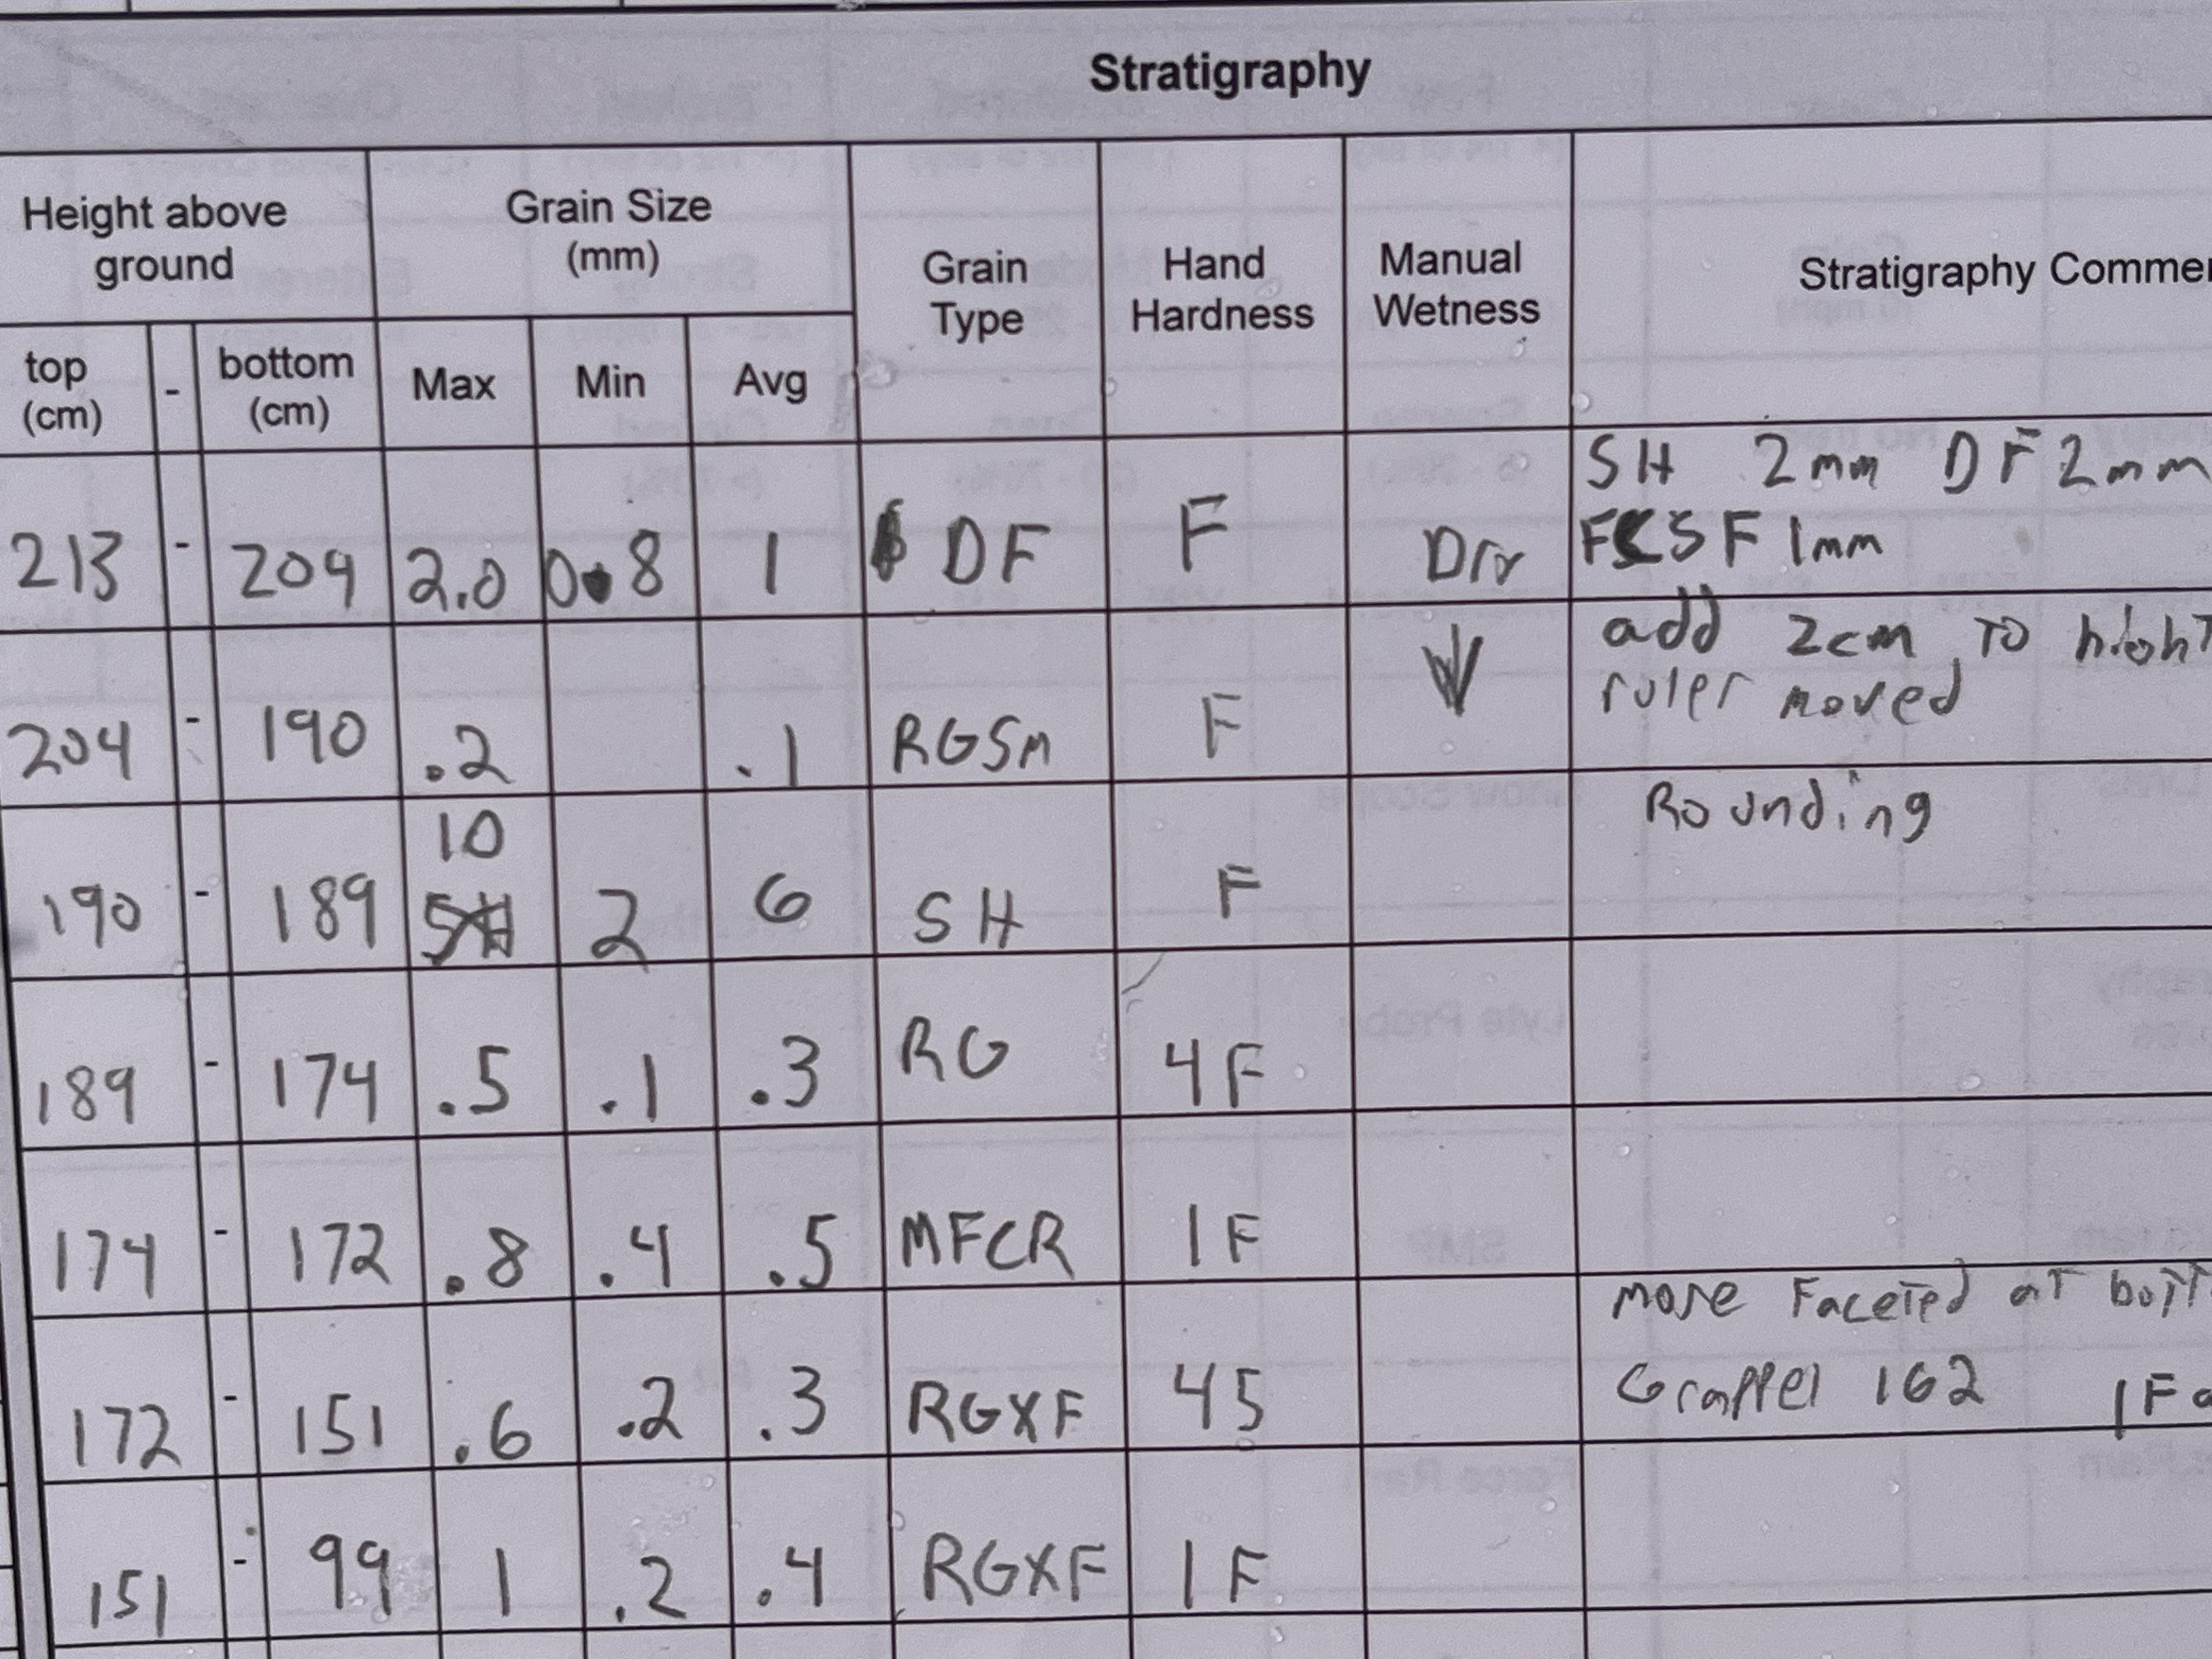 Stratigraphy
Height above ground
Grain Size (mm)
Grain Type
Hand Hardness
Manual Wetness
Stratigraphy Commen
top (cm) - bottom (cm) Max Min Avg
213 - 204 2.0 0.8 1 DF F Dry SH 2mm DF 2mm
FCSF 1mm
204 - 190 .2 .1 RGSM F add 2cm to hight
ruler moved
190 - 189 10 2 6 SH F Rounding
189 - 174 .5 .1 .3 RG 4F
174 - 172 .8 .4 .5 MFCR 1F
172 - 151 .6 .2 .3 RGXF 4F more Faceted at bott
Graffel 162 1F
151 - 99 1 .2 .4 RGXF 1F